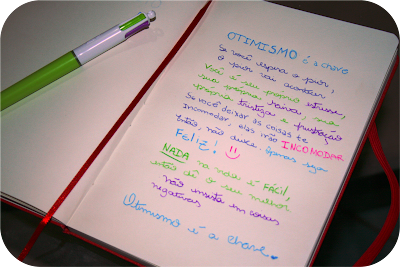 OTIMISMO é a chave
Se você espera o pior,
o pior vai acontecer.
Você é seu próprio stresse,
sua própria raiva, sua
própria tristeza e frustração
Se você deixar as coisas te
incomodar, elas irão INCOMODAR
Então, não deixe. Apenas seja
FELIZ! :)
NADA na vida é FÁCIL,
então dê o seu melhor
não invista em coisas
negativas
Otimismo é a chave.